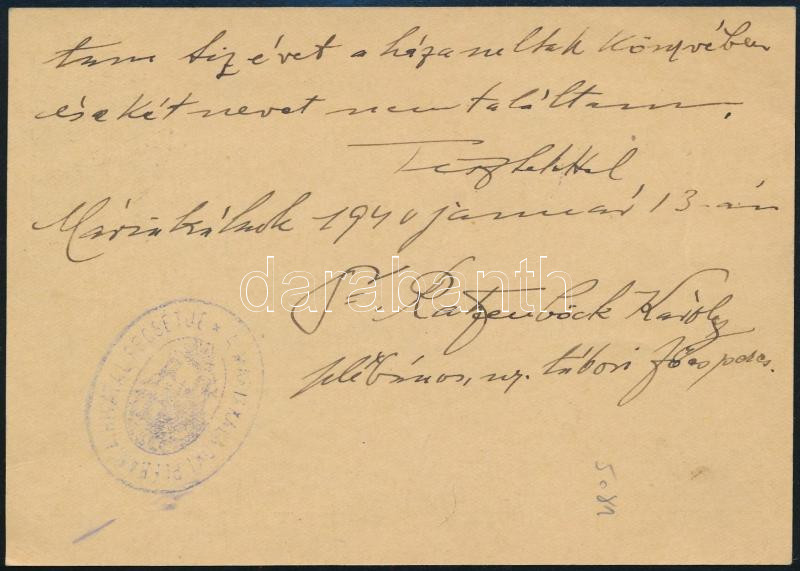 tam tiz évet a házasultak Könyvében
és e Két nevet nem találtam.
Tisztelettel
Máriakálnok 1940 január 13-án
Katzenböck Károly
plébános, ny. tábori főesperes.
PLEBÁNIAHIVATAL PECSÉTJE *
darabanth
5081